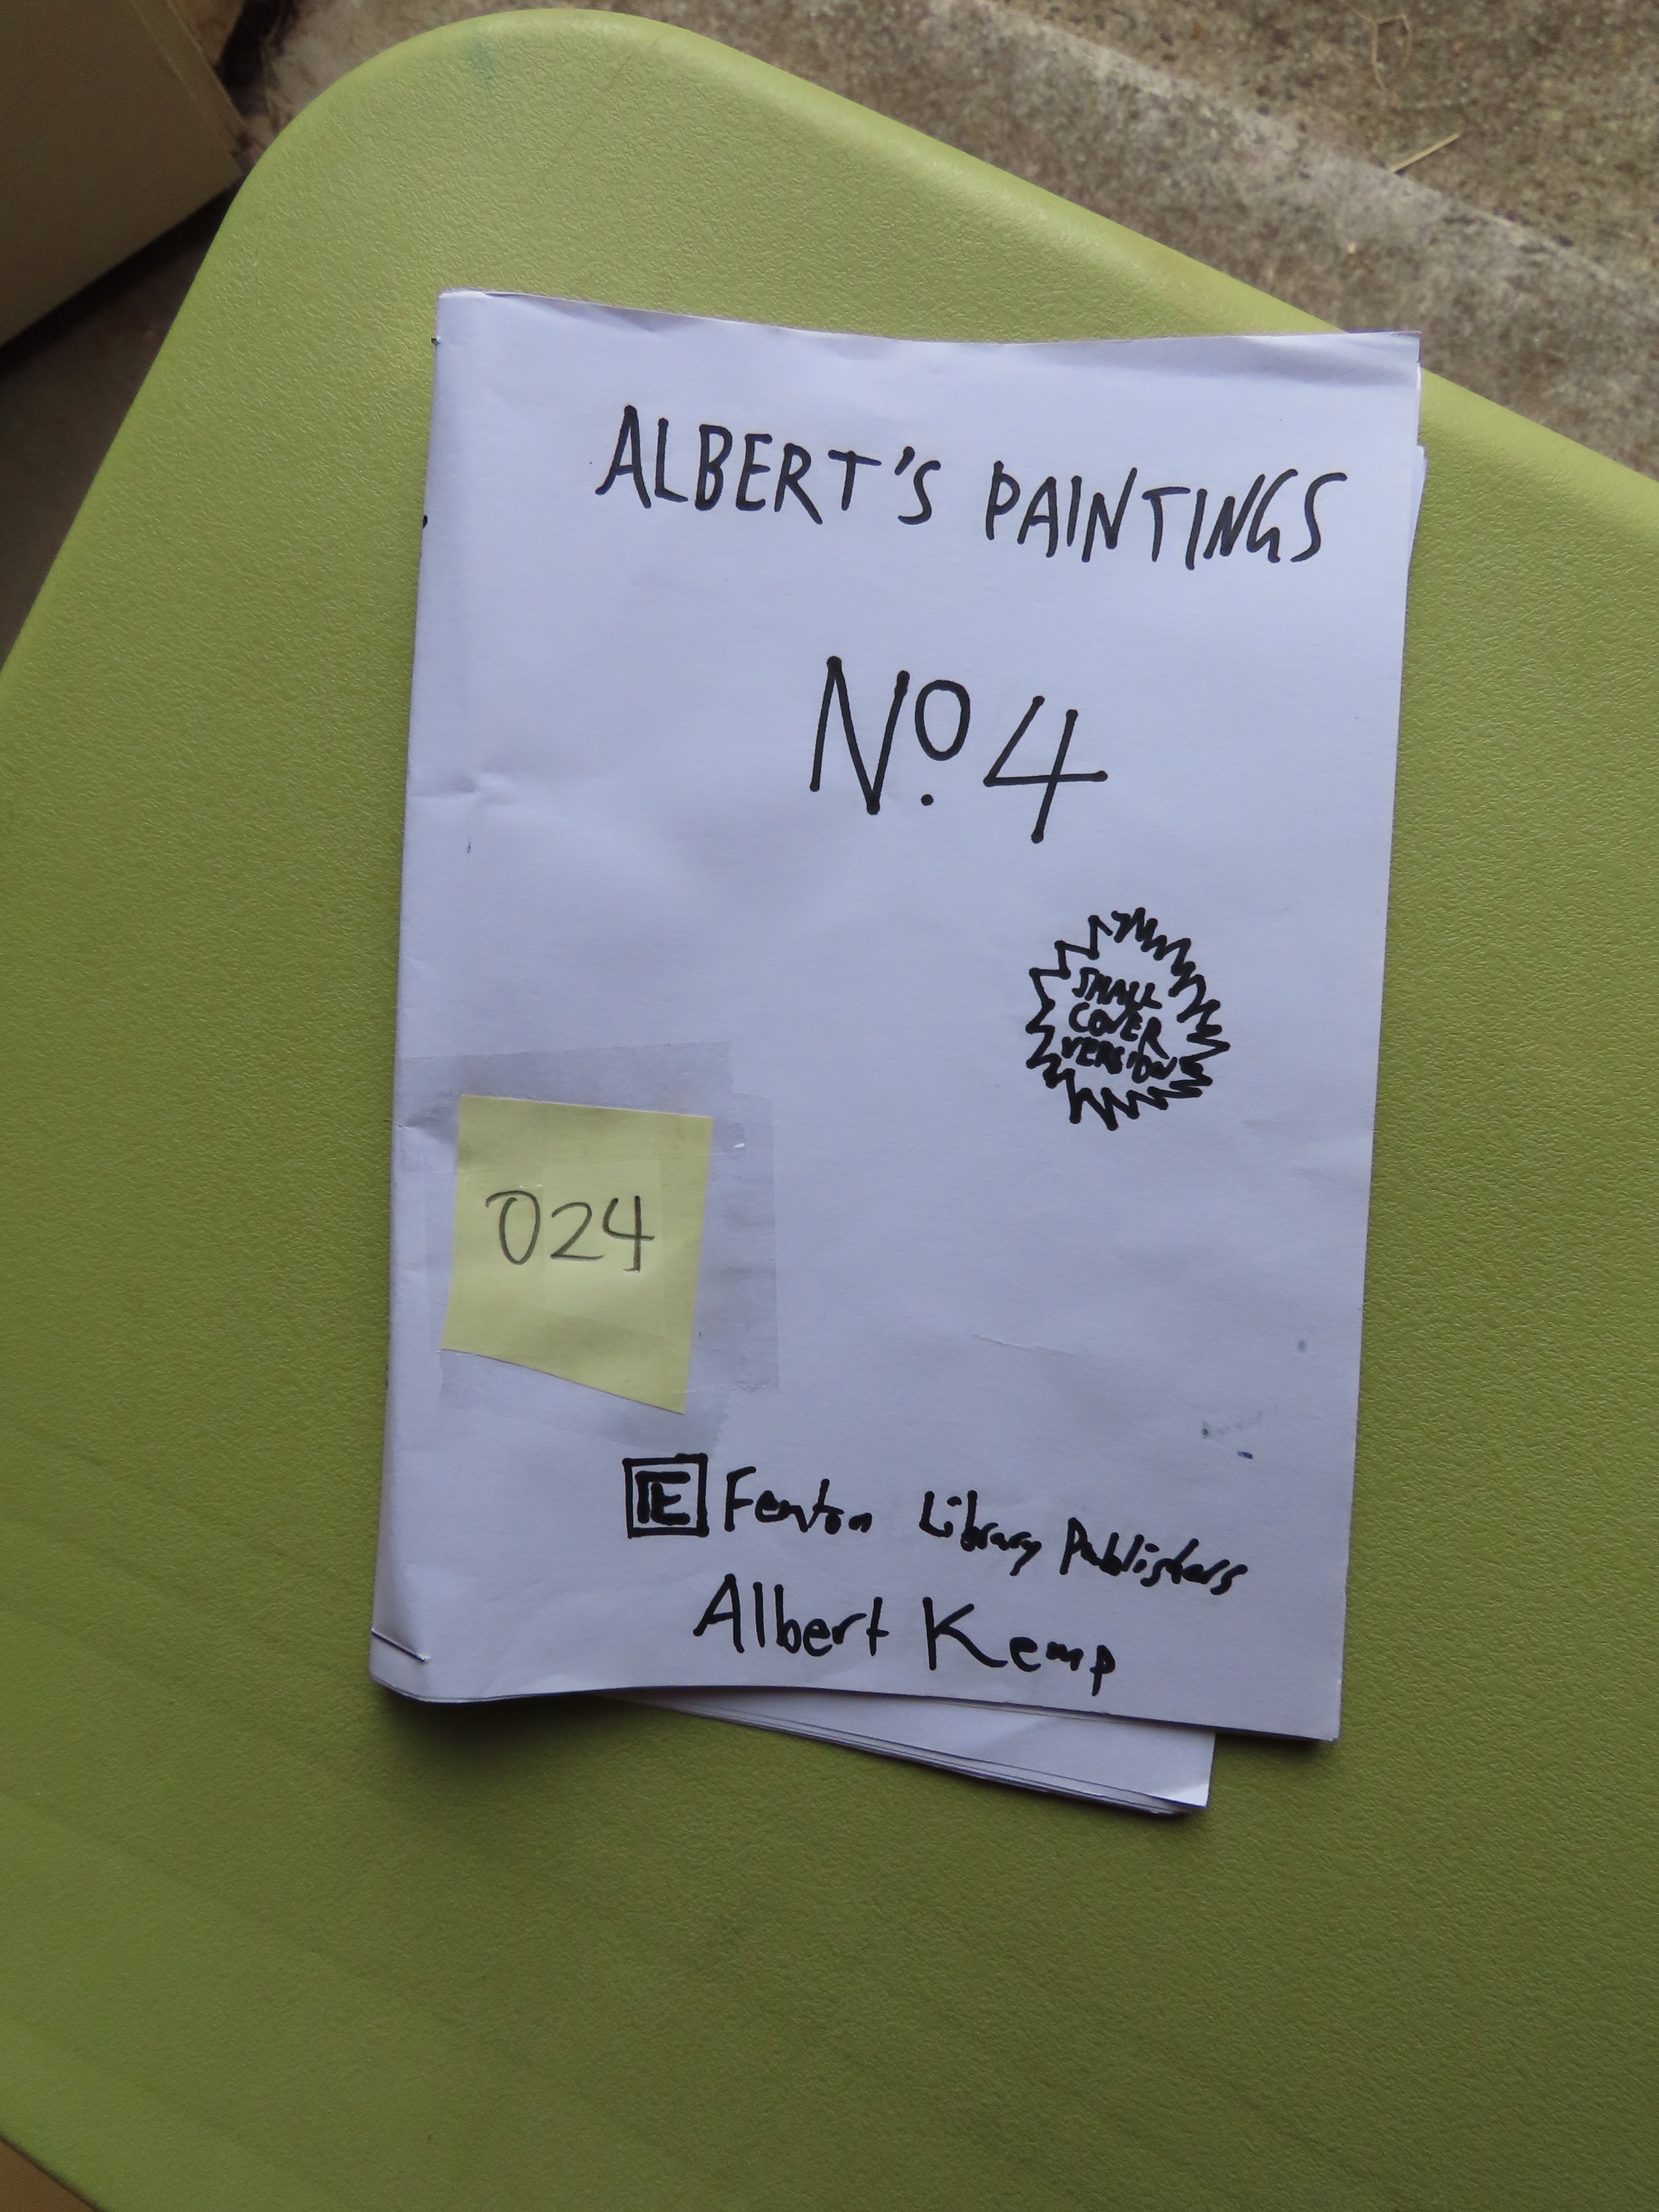 ALBERT'S PAINTINGS
Nº.4
SMALL
COVER
VERSION
024
Fenton Library Publishers
Albert Kemp